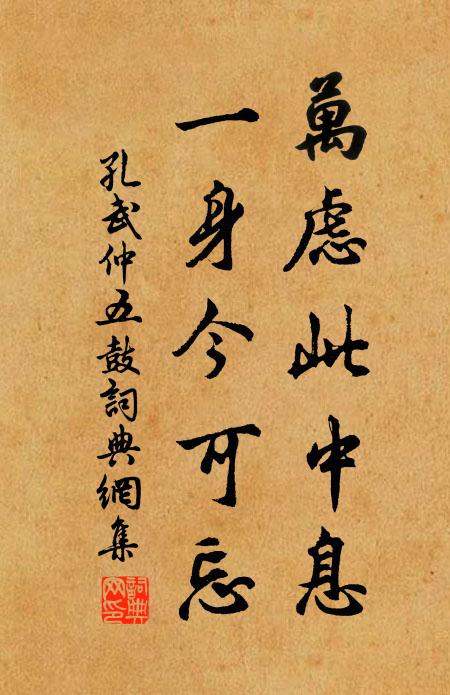 萬慮此中息
一身今可忘
孔武仲五鼓詞典網集
詞典
网印